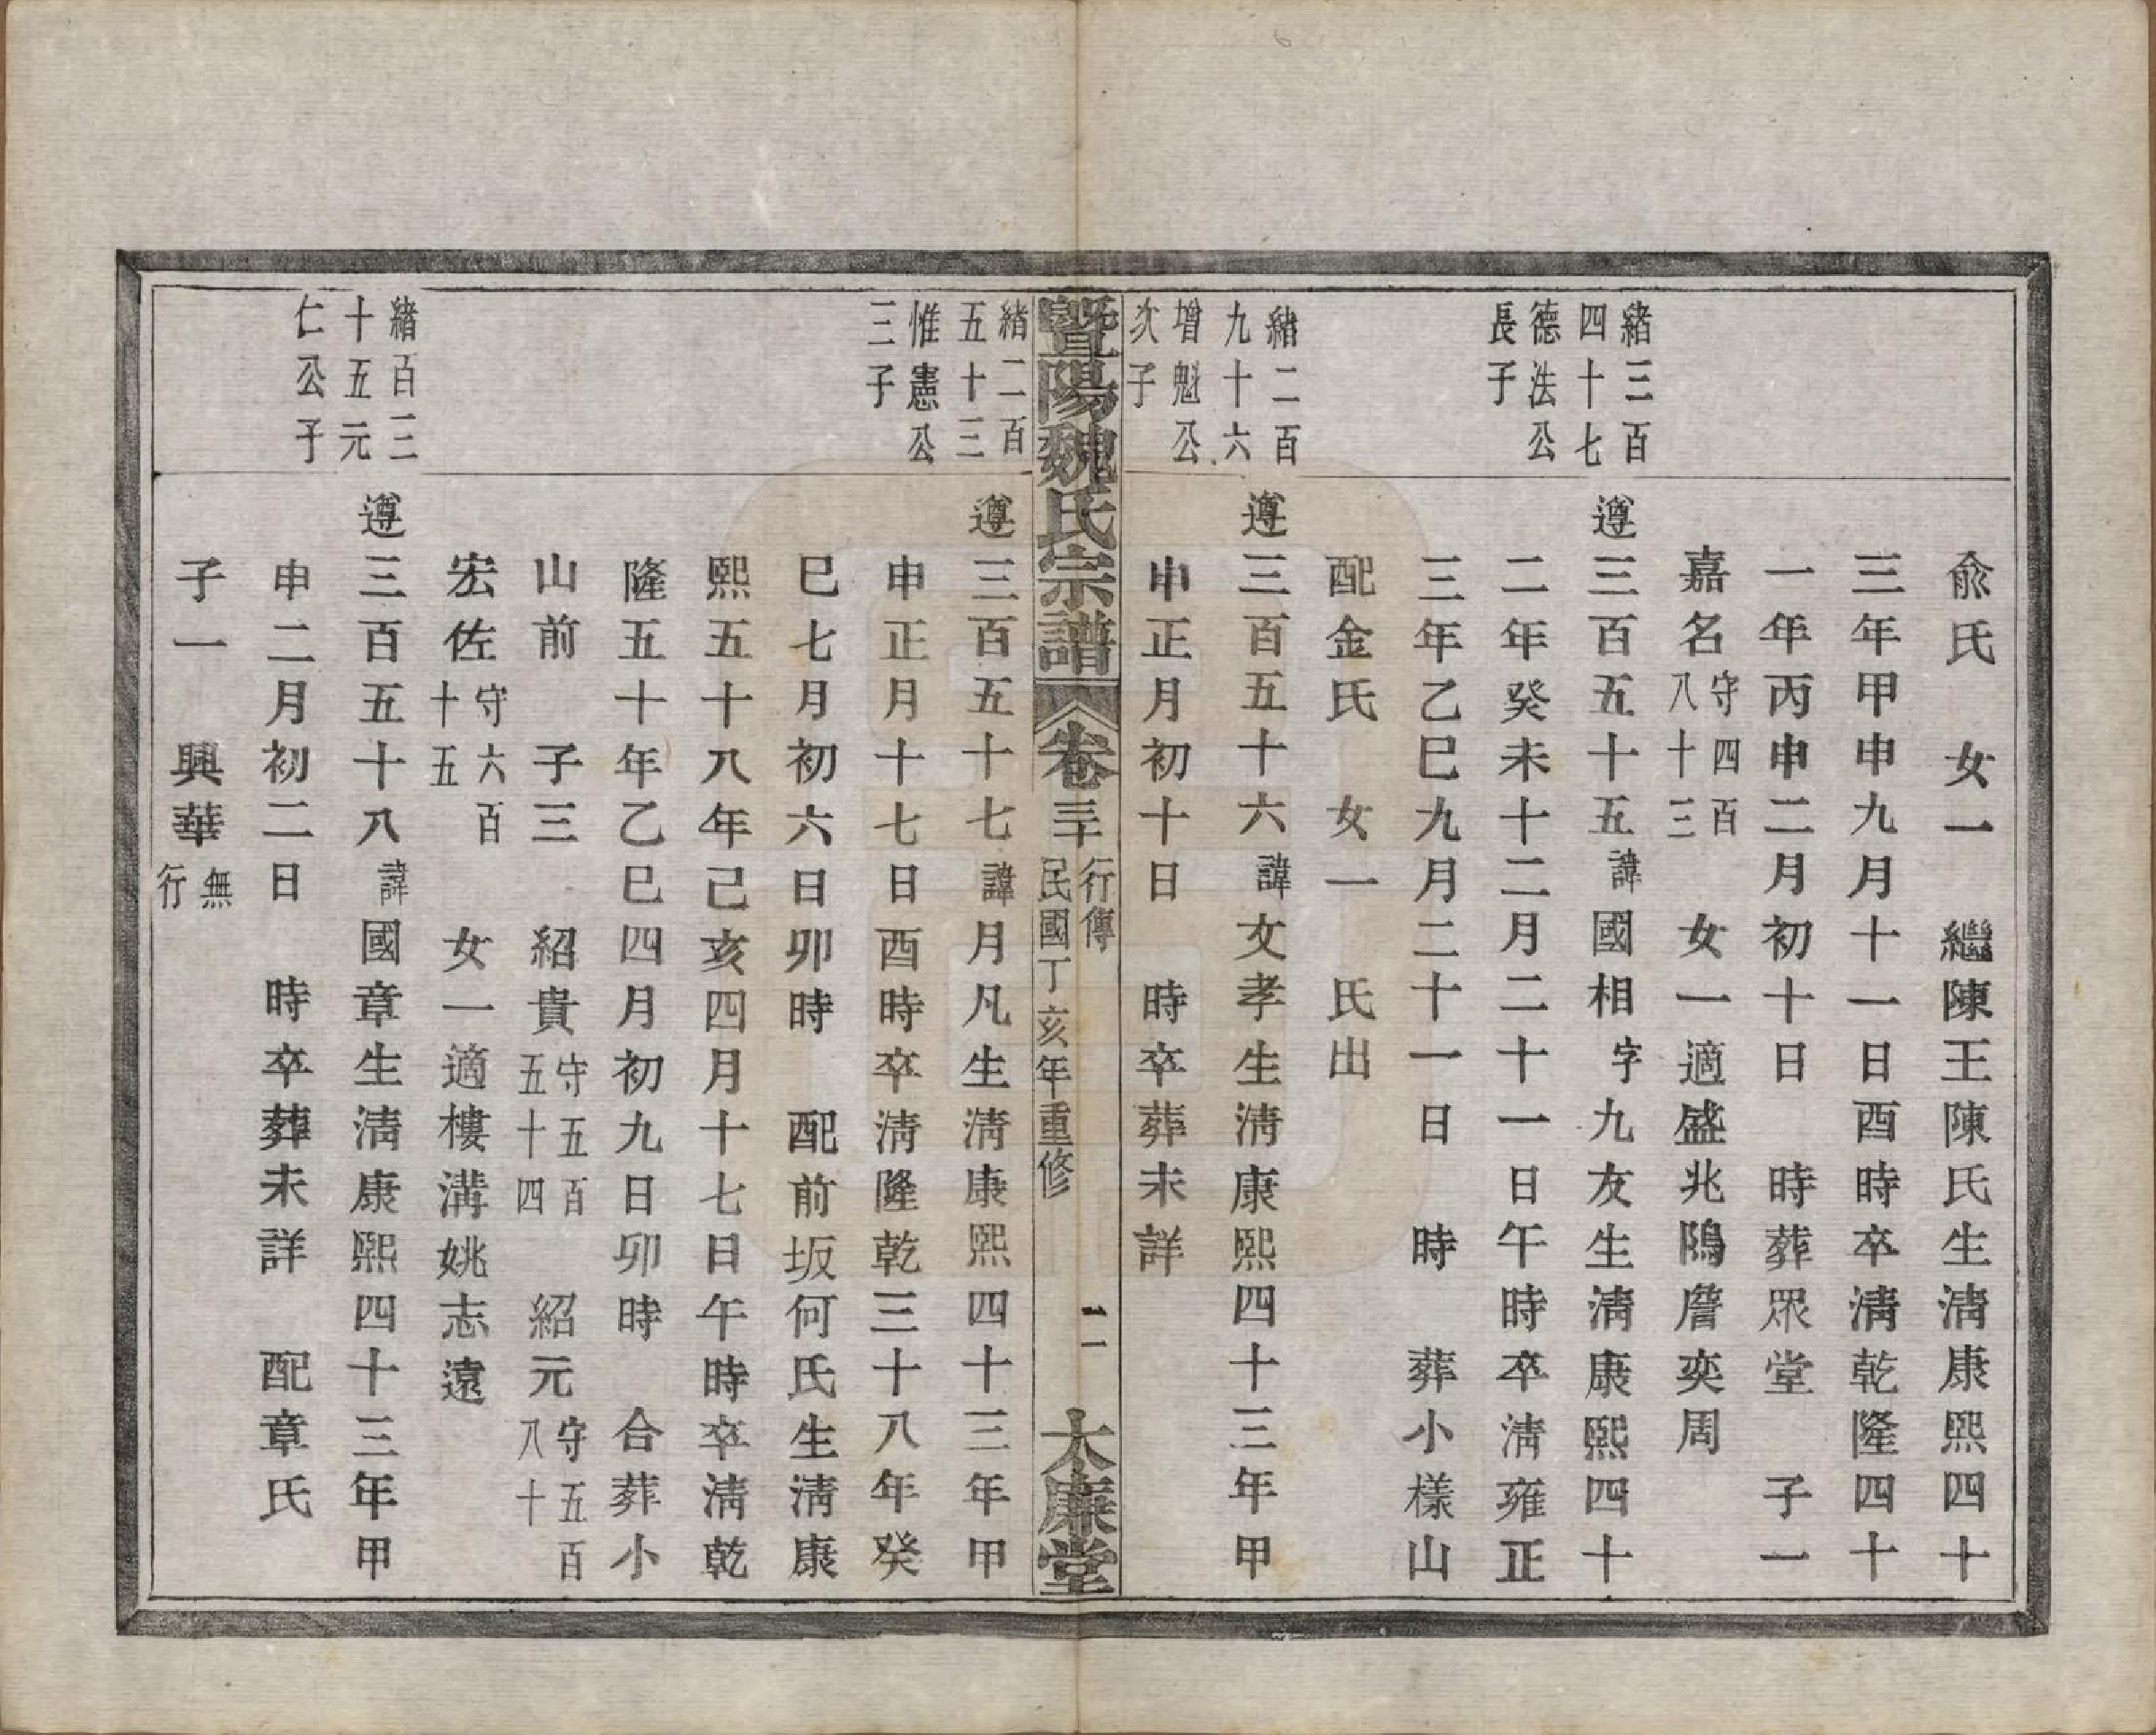 俞氏　女一　繼陳王陳氏生淸康熙四十
三年甲申九月十一日酉時卒淸乾隆四十
一年丙申二月初十日　時葬眾堂　子一
嘉名守四百八十三　女一適盛兆隝詹奕周
緒三百四十七德法公長子
遵三百五十五諱國相字九友生淸康熙四十
二年癸未十二月二十一日午時卒淸雍正
三年乙巳九月二十一日　時　葬小樣山
配金氏　女一　氏出
緒二百九十六增魁公次子
遵三百五十六諱文孝生淸康熙四十三年甲
申正月初十日　時卒葬未詳
暨陽魏氏宗譜　卷三十　行傳　民國丁亥年重修　二　大廉堂
緒二百五十三惟憲公三子
遵三百五十七諱月凡生淸康熙四十三年甲
申正月十七日酉時卒淸隆乾三十八年癸
巳七月初六日卯時　配前坂何氏生淸康
熙五十八年己亥四月十七日午時卒淸乾
隆五十年乙巳四月初九日卯時　合葬小
山前　子三　紹貴守五百五十四　紹元守五百八十
宏佐守六百十五　女一適樓溝姚志遠
緒百三十五元仁公子
遵三百五十八諱國章生淸康熙四十三年甲
申二月初二日　時卒葬未詳　配章氏
子一　興華無行